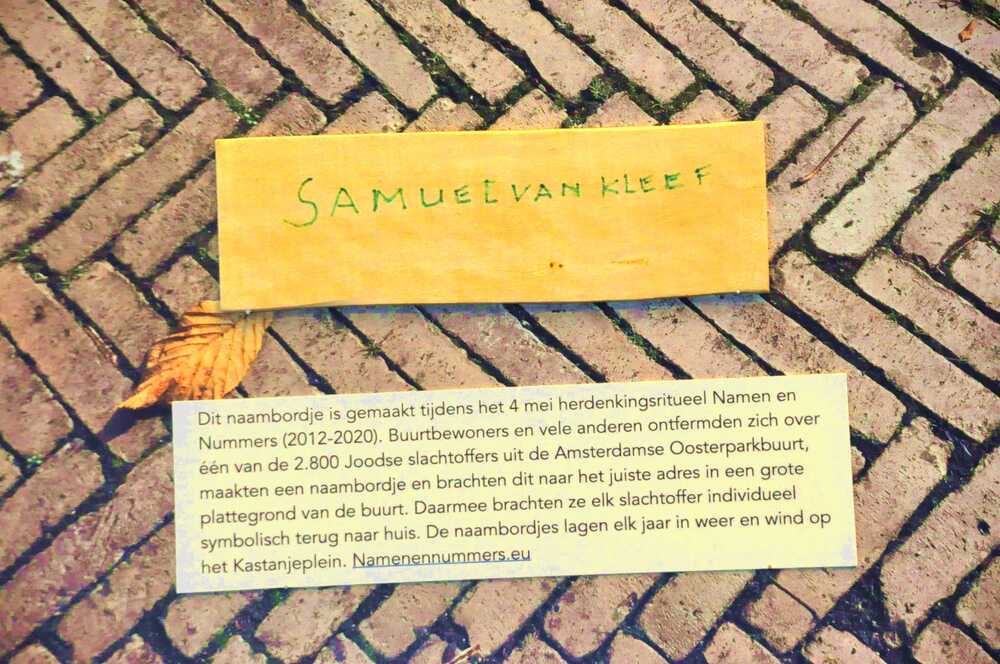 SAMUEL VAN KLEEF
Dit naambordje is gemaakt tijdens het 4 mei herdenkingsritueel Namen en
Nummers (2012-2020). Buurtbewoners en vele anderen ontfermden zich over
één van de 2.800 Joodse slachtoffers uit de Amsterdamse Oosterparkbuurt,
maakten een naambordje en brachten dit naar het juiste adres in een grote
plattegrond van de buurt. Daarmee brachten ze elk slachtoffer individueel
symbolisch terug naar huis. De naambordjes lagen elk jaar in weer en wind op
het Kastanjeplein. Namenennummers.eu